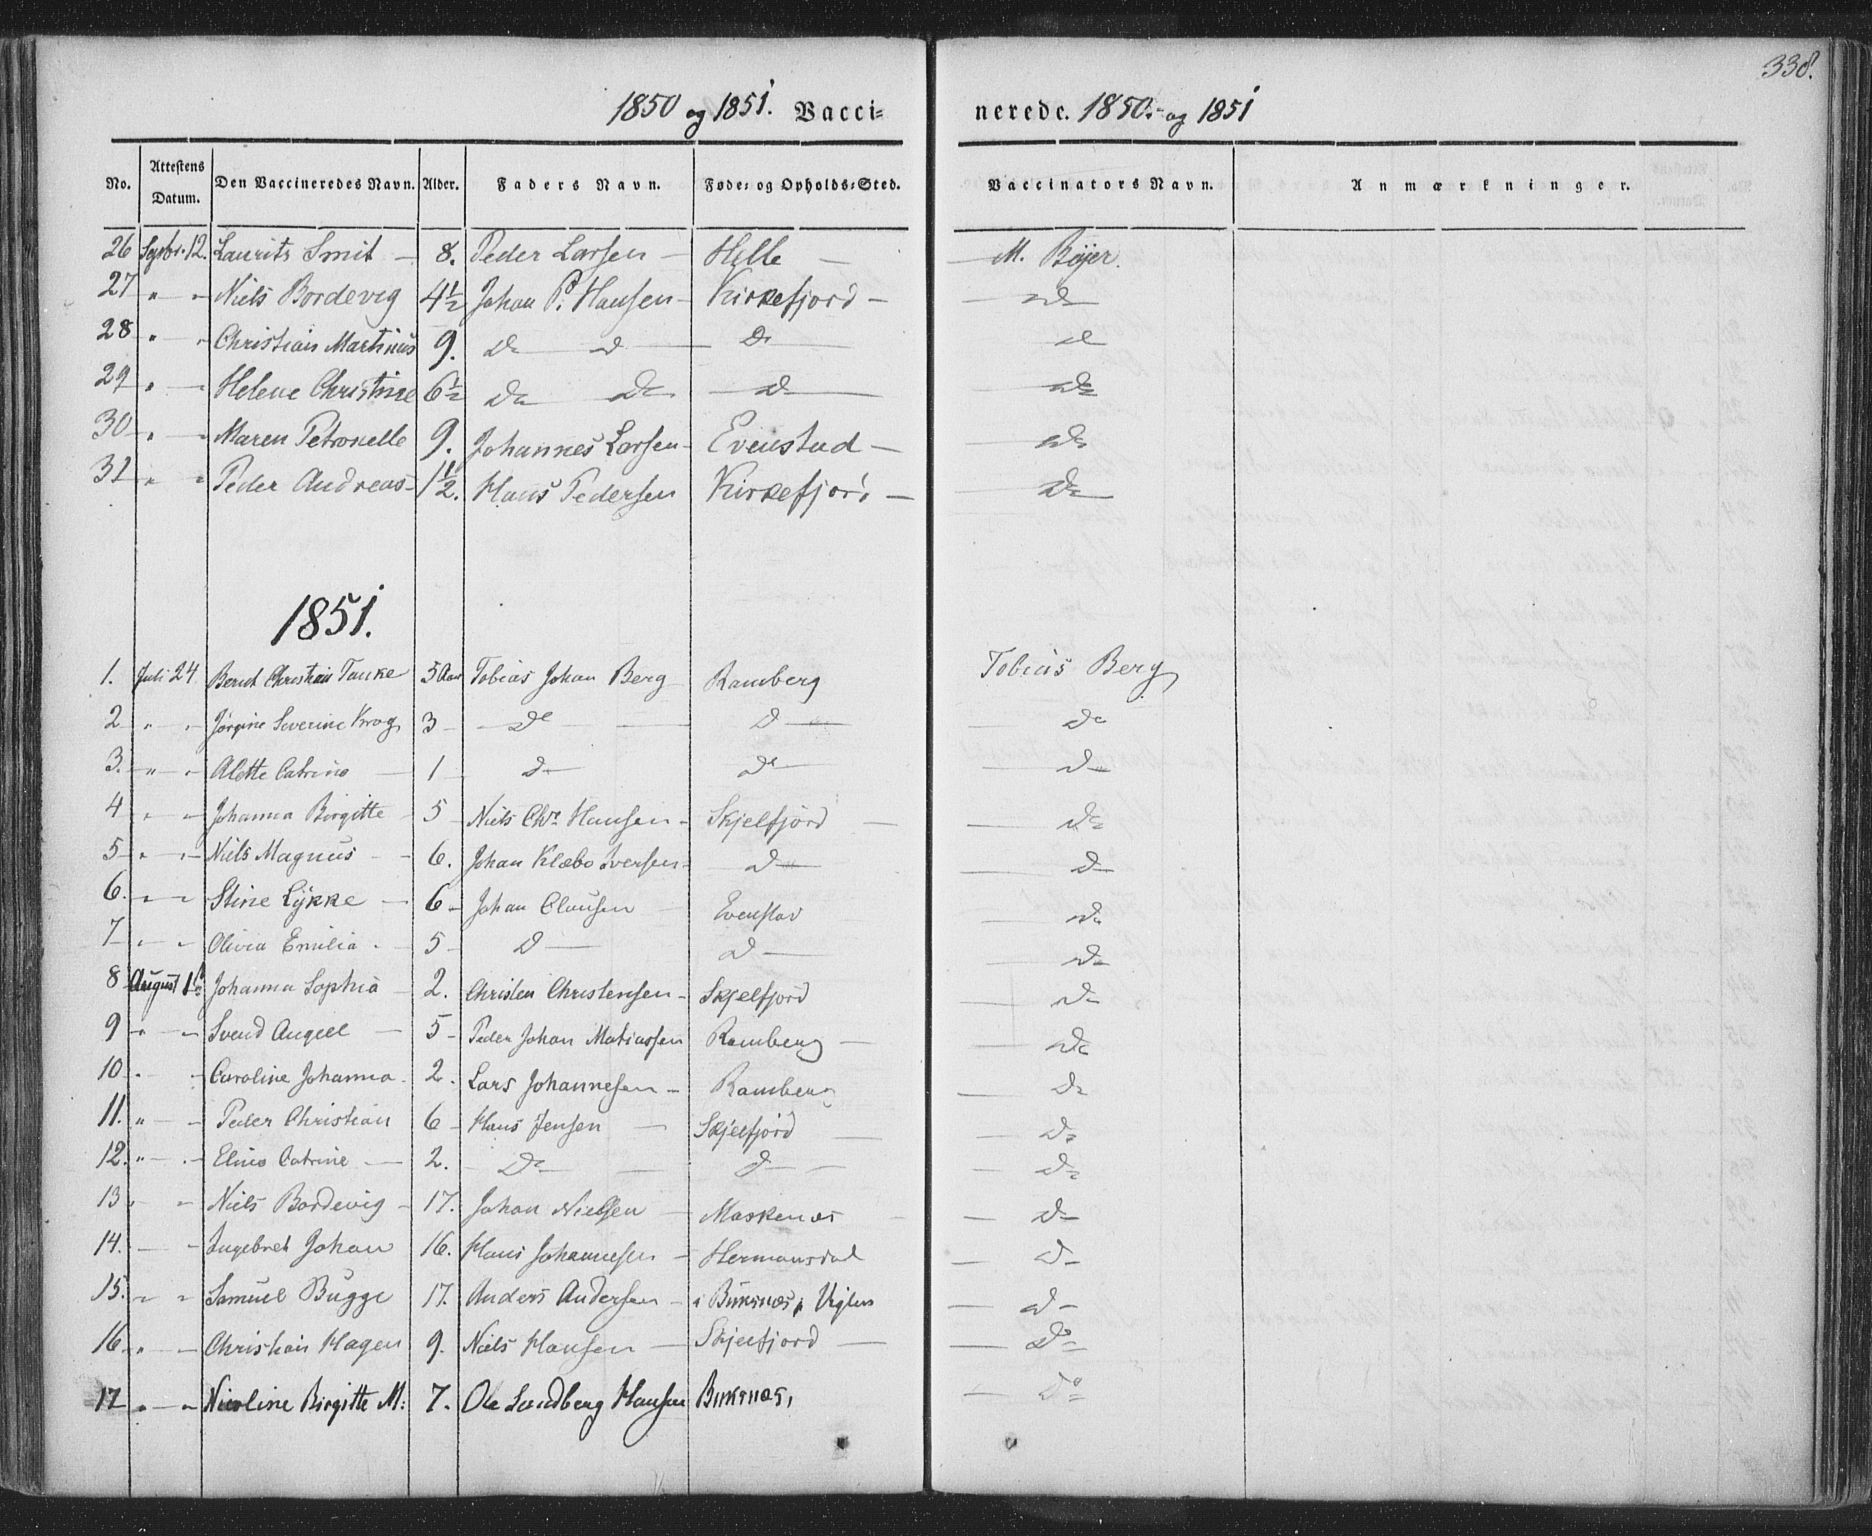 338.
1850 og 1851. Vacci= nerede. 1850 og 1851
No. Attestens Datum. Den Vaccineredes Navn. Alder. Faders Navn. Føde= og Opholds=Sted. Vaccinators Navn. Anmærkninger.
26 Septbr. 12. Laurits Smit — 8. Peder Larsen — Helle — M. Bøjer.
27 " " Niels Bordevig 4½ Johan P. Hansen — Kirkefjord — Do
28 " " Christian Martinus 9. Do Do Do Do
29 " " Helene Christine 6½ Do Do Do Do
30 " " Maren Petronelle 9. Johannes Larsen — Evenstad — Do
31 " " Peder Andreas 1½. Hans Pedersen Kirkefjord — Do
1851.
1. Juli 24 Bernt Christian Tanke 5 Aar Tobias Johan Berg Ramberg Tobias Berg
2 " " Jørgine Severine Krog 3 Do Do Do
3. " " Alette Catrine 1 Do Do Do
4 " " Johanna Birgitte 5 Niels Chr. Hansen Skjelfjord Do
5 " " Niels Magnus 6. Johan Klæbo Iversen Do Do
6. " " Stine Lykke 6 Johan Clausen Evenstad Do
7 " " Olivia Emilia 5 Do Do Do
8 August 1ste Johanna Sophia 2. Christen Christensen Skjelfjord Do
9 " " Svend Angell 5 Peder Johan Matiassen Ramberg Do
10 " " Caroline Johanna 2. Lars Johannesen Ramberg Do
11. " " Peder Christian 6 Hans Jensen Skjelfjord Do
12. " " Catrine 2. Do Do Do
13 " " Niels Bordevig 17. Johan Nielsen Moskenæs Do
14. Ingebret Johan 16. Hans Johannesen Hermansdal Do
15. " " Samuel Bugge 17. Anders Andersen i Buksnæs, Do
16 " " Christian Hagen 9. Niels Hansen Skjelfjord Do
17 " " Nicoline Birgitte M: 7. Ole Sundberg Hansen Buksnæs, Do